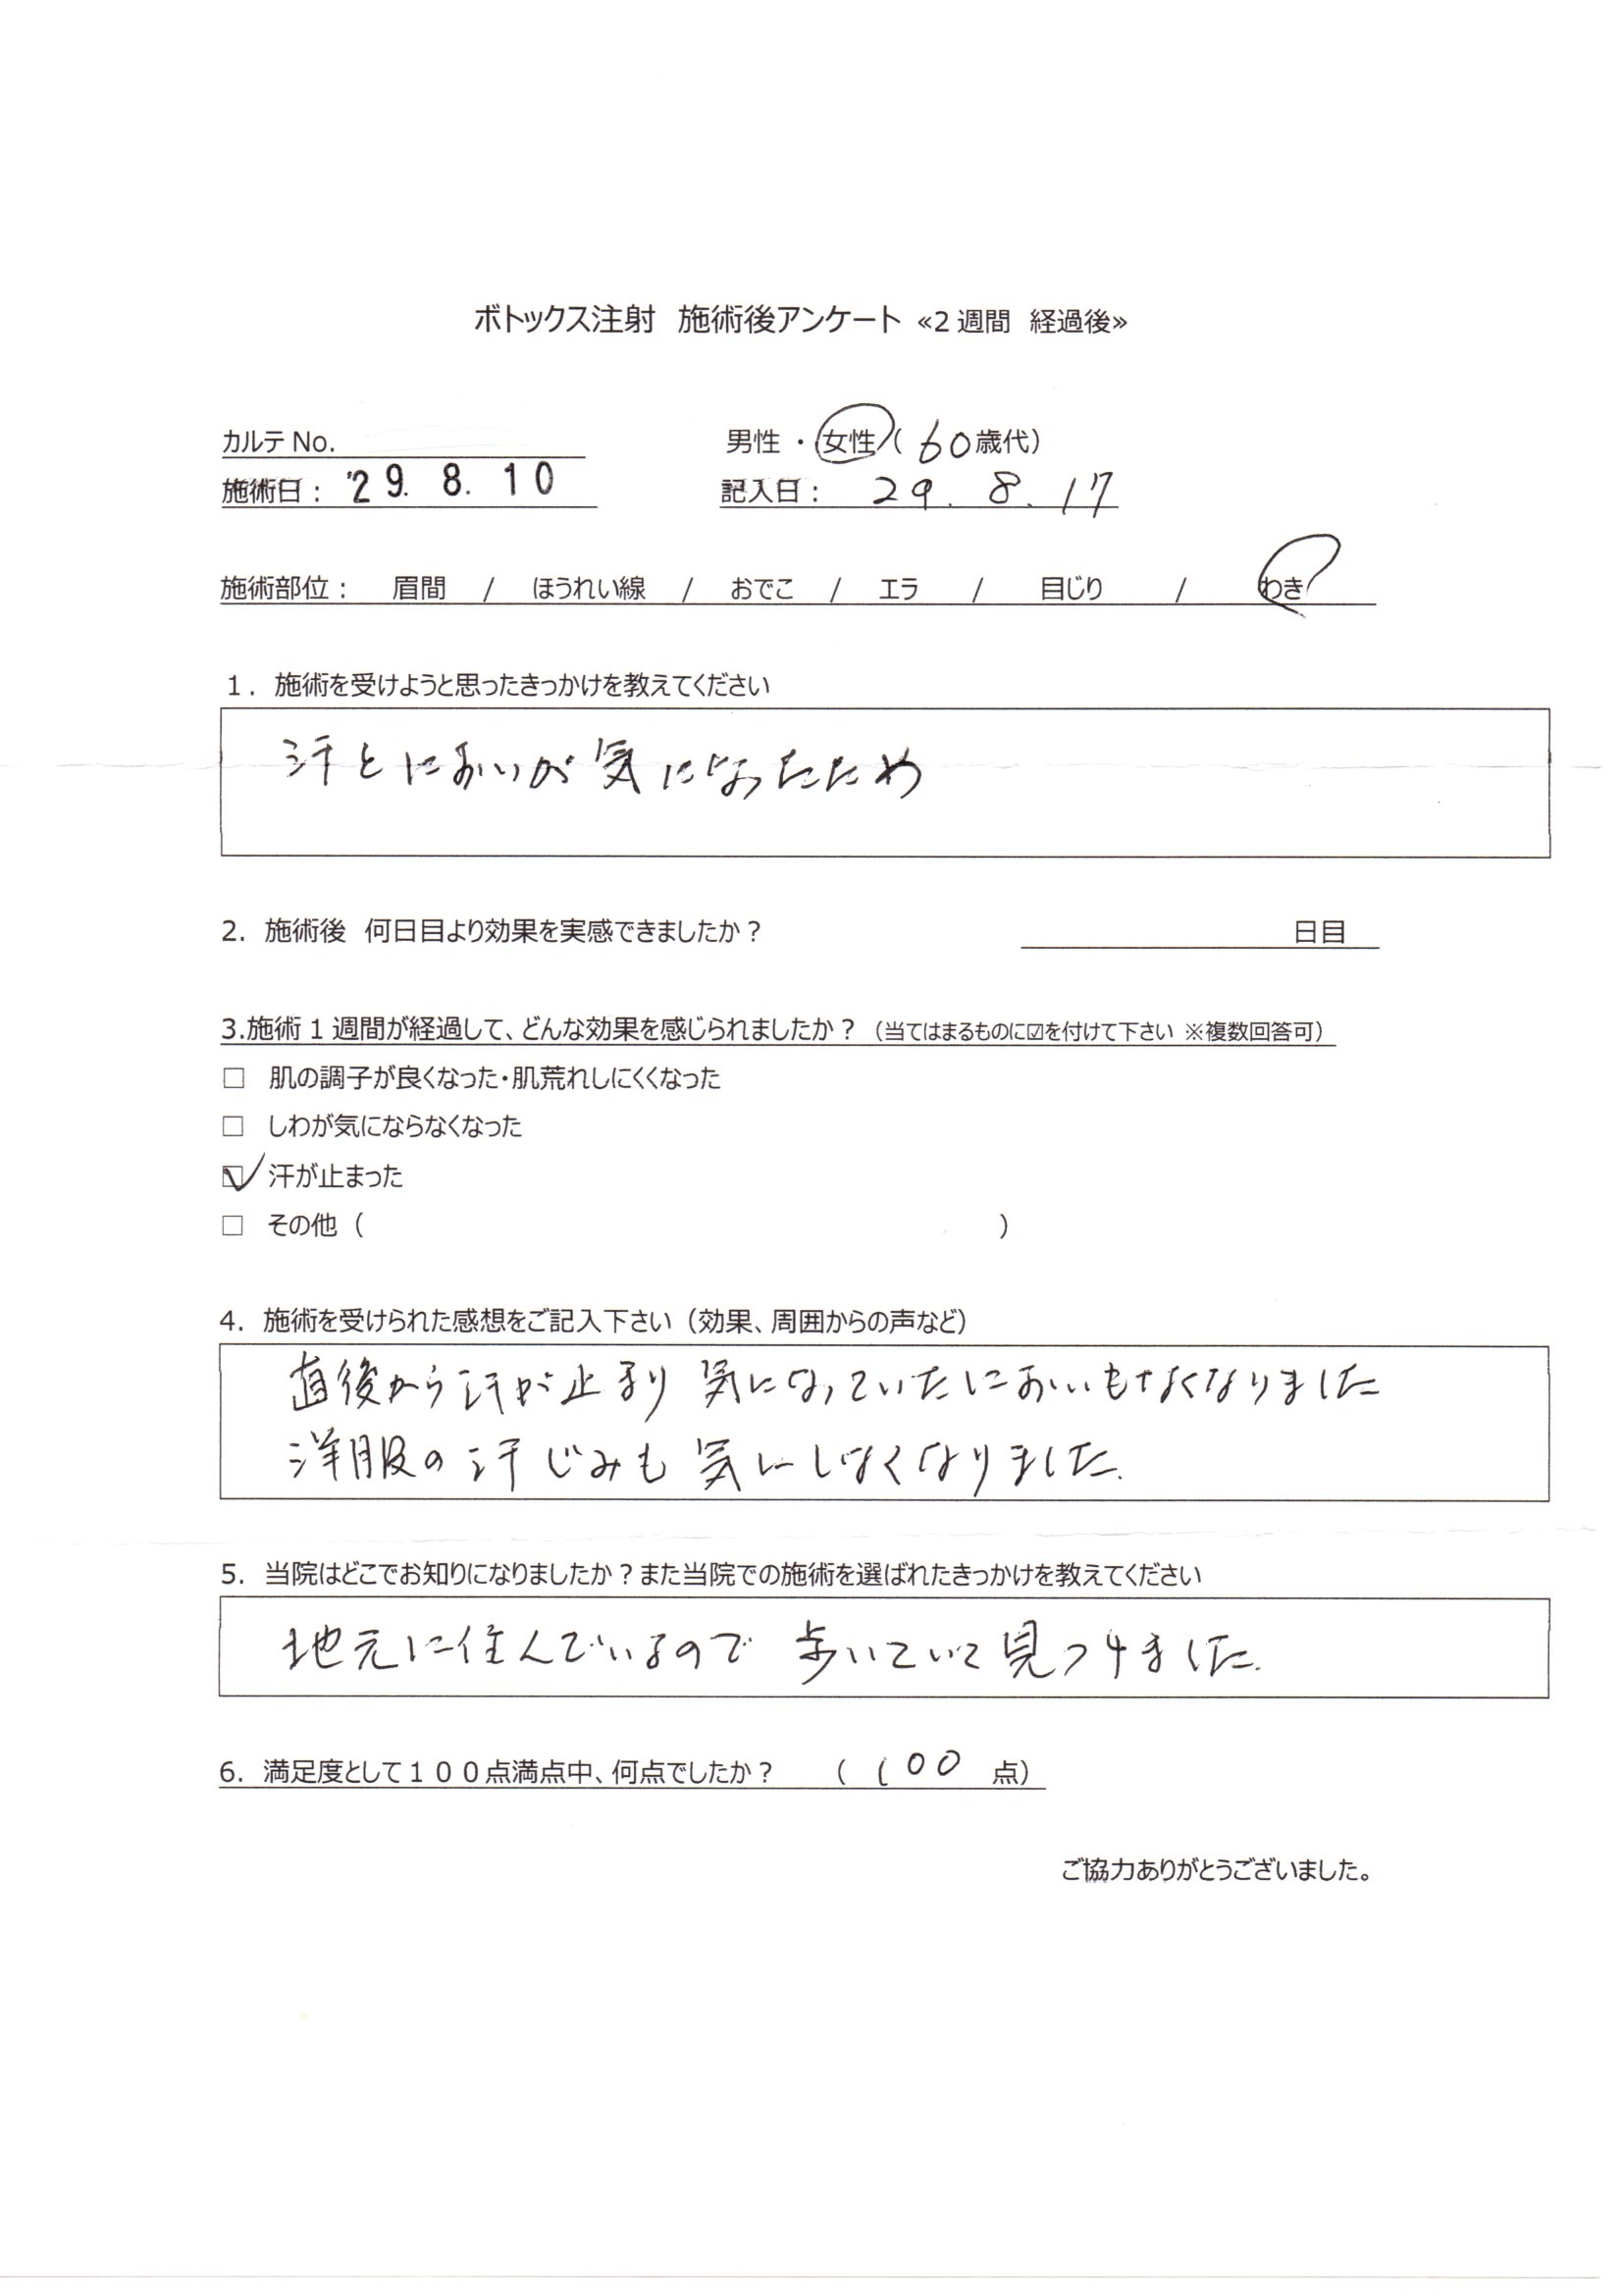 ボトックス注射 施術後アンケート «2週間 経過後»
カルテ No. 男性 ・ 女性 ( 60歳代)
施術日: '29. 8. 10 記入日: 29. 8. 17
施術部位: 眉間 / ほうれい線 / おでこ / エラ / 目じり / わき
1. 施術を受けようと思ったきっかけを教えてください
汗とにおいが気になったため
2. 施術後 何日目より効果を実感できましたか? 日目
3.施術1週間が経過して、どんな効果を感じられましたか?(当てはまるものに☑を付けて下さい ※複数回答可)
□ 肌の調子が良くなった・肌荒れしにくくなった
□ しわが気にならなくなった
☑ 汗が止まった
□ その他( )
4. 施術を受けられた感想をご記入下さい(効果、周囲からの声など)
直後から汗が止まり 気になっていたにおいもなくなりました
洋服の汗じみも 気にしなくなりました.
5. 当院はどこでお知りになりましたか?また当院での施術を選ばれたきっかけを教えてください
地元に住んでいるので 歩いていて見つけました.
6. 満足度として100点満点中、何点でしたか? ( 100 点)
ご協力ありがとうございました。